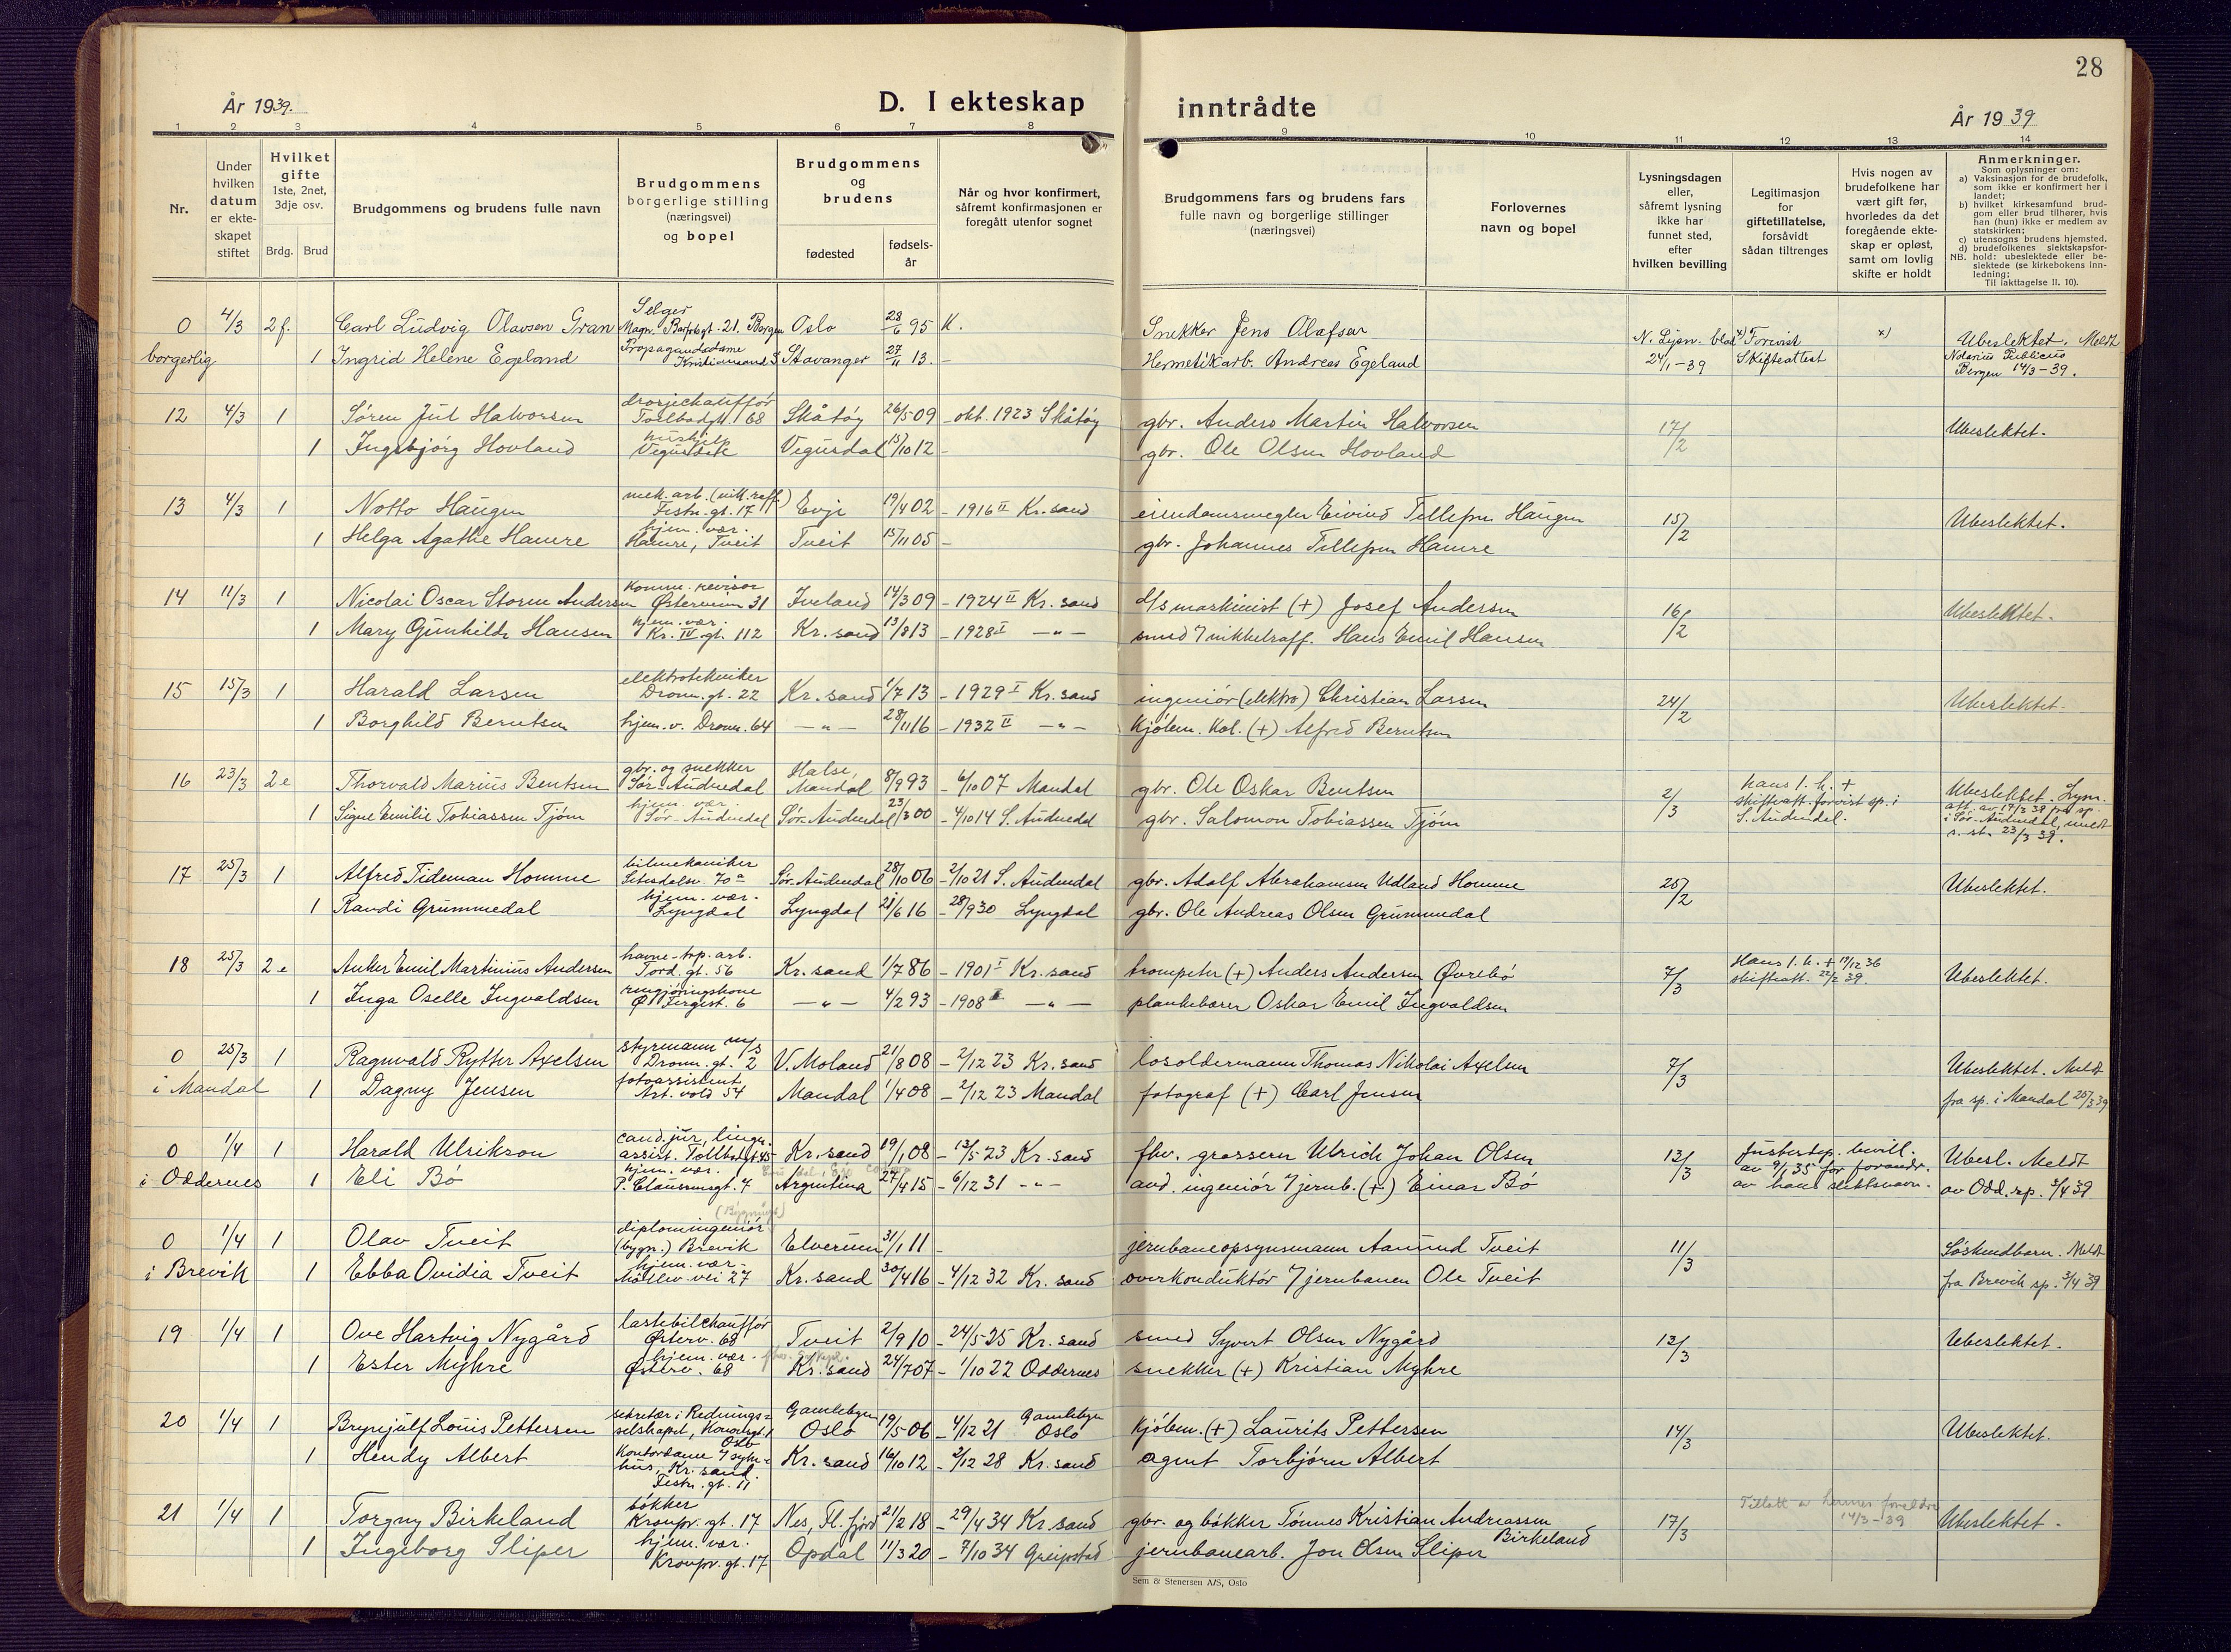 28
År 1939.
D. I ekteskap inntrådte
År 1939
1 2 3 4 5 6 7 8 9 10 11 12 13 14
Nr.
Under hvilken datum er ekteskapet stiftet
Hvilket gifte 1ste, 2net, 3dje osv.
Brdg. Brud
Brudgommens og brudens fulle navn
Brudgommens borgerlige stilling (næringsvei) og bopel
Brudgommens og brudens
fødested
fødselsår
Når og hvor konfirmert, såfremt konfirmasjonen er foregått utenfor sognet
Brudgommens fars og brudens fars fulle navn og borgerlige stillinger (næringsvei)
Forlovernes navn og bopel
Lysningsdagen eller, såfremt lysning ikke har funnet sted, efter hvilken bevilling
Legitimasjon for giftetillatelse, forsåvidt sådan tiltrenges
Hvis nogen av brudefolkene har vært gift før, hvorledes da det foregående ekteskap er opløst, samt om lovlig skifte er holdt
Anmerkninger.
Som oplysninger om:
a) Vaksinasjon for de brudefolk, som ikke er konfirmert her i landet;
b) hvilket kirkesamfund brudgom eller brud tilhører, hvis han (hun) ikke er medlem av statskirken;
c) utensogns brudens hjemsted.
d) brudefolkenes slektskapsforhold: ubeslektede eller beslektede (se kirkebokens innledning;
NB.
Til iakttagelse II. 10).
0 4/3 2 f. Carl Ludvig Olavsen Gran Selger Magn. Barfotsgt. 21. Bergen Oslo 28/6 95 K. Snekker Jens Olafsen N. Lysn. blad x) Forevist x) Ubeslektet. Meldt
borgerlig 1 Ingrid Helene Egeland Propagandadame Kristiansand S Stavanger 27/11 13. - Hermetikarb. Andreas Egeland 24/1-39 Skifteattest Notarius Publicus Bergen 14/3-39.
12 4/3 1 Søren Jul Halvorsen drosjechauffør Tollbodgt. 68 Skåtøy 26/5 09 - okt. 1923 Skåtøy gbr. Anders Martin Halvorsen 17/2 Ubeslektet.
1 Ingebjørg Hovland hushjelp Vegusdal 15/10 12 - gbr. Ole Olsen Hovland
13 4/3 1 Notto Haugen mek. arb. (nikk. raff.) Festn. gt. 17 Evje 19/4 02 - 1916 II Kr. sand eiendomsmegler Eivind Tellefsen Haugen 15/2 Ubeslektet.
1 Helga Agathe Hamre hjem. vær. Hamre, Tveit Tveit 15/11 05 - gbr. Johannes Tellefsen Hamre
14 11/3 1 Nicolai Oscar Storm Andersen komm. revisor Østerveien 31 Iveland 14/3 09 - 1924 II Kr. sand d/s maskinist (+) Josef Andersen 16/2 Ubeslektet.
1 Mary Gunhilde Hansen hjem. vær. Kr. IV. gt. 112 Kr. sand 13/8 13 - 1928 I -"- smed v/ nikkelraff. Hans Emil Hansen
15 15/3 1 Harald Larsen elektrotekniker Dronn. gt. 22 Kr. sand 1/7 13 - 1929 I Kr. sand ingeniør (elektro) Christian Larsen 24/2 Ubeslektet.
1 Borghild Berntsen hjem. v. Dronn. 64 -"- 28/11 16 - 1932 II -"- Kjøbm. Kol. (+) Alfred Berntsen
16 23/3 2 e Thorvald Marius Bentsen gbr. og snekker Sør-Audnedal Halse, Mandal 8/9 93 - 6/10 07 Mandal gbr. Ole Oskar Bentsen 2/3 hans 1. h. + skifteatt. forvist sp. i S. Audnedal. Ubeslektet. Lysn. att. av 17/2 39 fra sp. i Sør-Audnedal, meldt s. st. 23/3 39.
1 Signe Emilie Tobiassen Tjøm hjem. vær. Sør-Audnedal Sør-Audnedal 23/1 00 - 4/10 14 S. Audnedal gbr. Salomon Tobiassen Tjøm
17 25/3 1 Alfred Tideman Homme bilmekaniker Setesdalsv. 70 a Sør-Audnedal 28/10 06 - 2/10 21 S. Audnedal gbr. Adolf Abrahamsen Udland Homme 25/2 Ubeslektet.
1 Randi Grummedal hjem. vær. Lyngdal Lyngdal 21/6 16 - 28/9 30 Lyngdal gbr. Ole Andreas Olsen Grummedal
18 25/3 2 e Anker Emil Martinius Andersen havne-trp. arb. Tord. gt. 56 Kr. sand 1/7 86 - 1901 I Kr. sand trompeter (+) Anders Andersen Øvrebø 7/3 Hans 1. h. + 19/12 36 skifteatt. 22/2 39. Ubeslektet.
1 Inga Oselle Ingvaldsen rengjøringskone Ø. Torgest. 6 -"- 4/2 93 - 1908 -"- plankebærer Oskar Emil Ingvaldsen
0 25/3 1 Ragnvald Rytter Axelsen styrmann m/s Dronn. gt. 2 V. Moland 21/8 08 - 2/12 23 Kr. sand losoldermann Thomas Nikolai Axelsen 7/3 Ubeslektet. Meldt
i Mandal 1 Dagny Jensen fotoassistent Art. vold 54 Mandal 1/4 08 - 2/12 23 Mandal fotograf (+) Carl Jensen fra sp. i Mandal 25/3 39
0 1/4 1 Harald Ulrikson cand. jur., lingn. assist. Tollbodgt 45 Kr. sand 29/1 08 - 13/5 23 Kr. sand fhv. grosserer Ulrich Johan Olsen 13/3 Justisdep. bevill. av 9/1 35 for forandr. av hans slektsnavn. Ubesl. Meldt
i Oddernes 1 Eli Bø hjem. vær. P. Claussønsgt. 7 Argentina 27/4 15 - 6/12 31 -"- avd. ingeniør v/ jernb. (+) Einar Bø av Odd. sp. 3/4 39
0 1/4 1 Olav Tveit (Bygnings) diplomingeniør (bygn.) Brevik Elverum 31/1 11 - jernbaneopsynsmann Aamund Tveit 11/3 Søskendbarn. Meldt
i Brevik 1 Ebba Ovidia Tveit hjem. vær. vei 27 Kr. sand 30/4 16 - 4/12 32 Kr. sand overkonduktør v/ jernbanen Ole Tveit fra Brevik sp. 3/4 39
19 1/4 1 Ove Hartvig Nygård lastebilchauffør Østerv. 68 Tveit 2/9 10 - 24/5 25 Kr. sand smed Syvert Olsen Nygård 13/3 Ubeslektet.
1 Ester Myhre hjem. vær. Østerv. 68 Kr. sand 24/7 07 - 1/10 22 Oddernes snekker (+) Kristian Myhre
20 1/4 1 Brynjulf Louis Pettersen sekretær i Rednings=selskapet, Oslo Gamlebyen Oslo 19/5 06 - 4/12 21 Gamlebyen Oslo Kjøbm. (+) Laurits Pettersen 14/3 Ubeslektet.
1 Hendy Albert Kontordame v/ syke=hus, Kr. sand. Festn. gt. 11 Kr. sand 16/10 12 - 2/12 28 Kr. sand agent Torbjørn Albert
21 1/4 1 Torgny Birkeland bøkker Kronpr. gt. 17 Nes, Fl. fjord 21/2 18 - 29/4 34 Kr. sand gbr. og bøkker Tønnes Kristian Andreassen Birkeland 17/3 Tillatt av hennes foreldre 14/3-39 Ubeslektet.
1 Ingeborg Sliper hjem. vær. Kronpr. gt. 17 Opdal 11/3 20 - 7/10 34 Greipstad jernbanearb. Jon Olsen Sliper
Sem & Stenersen A/S, Oslo